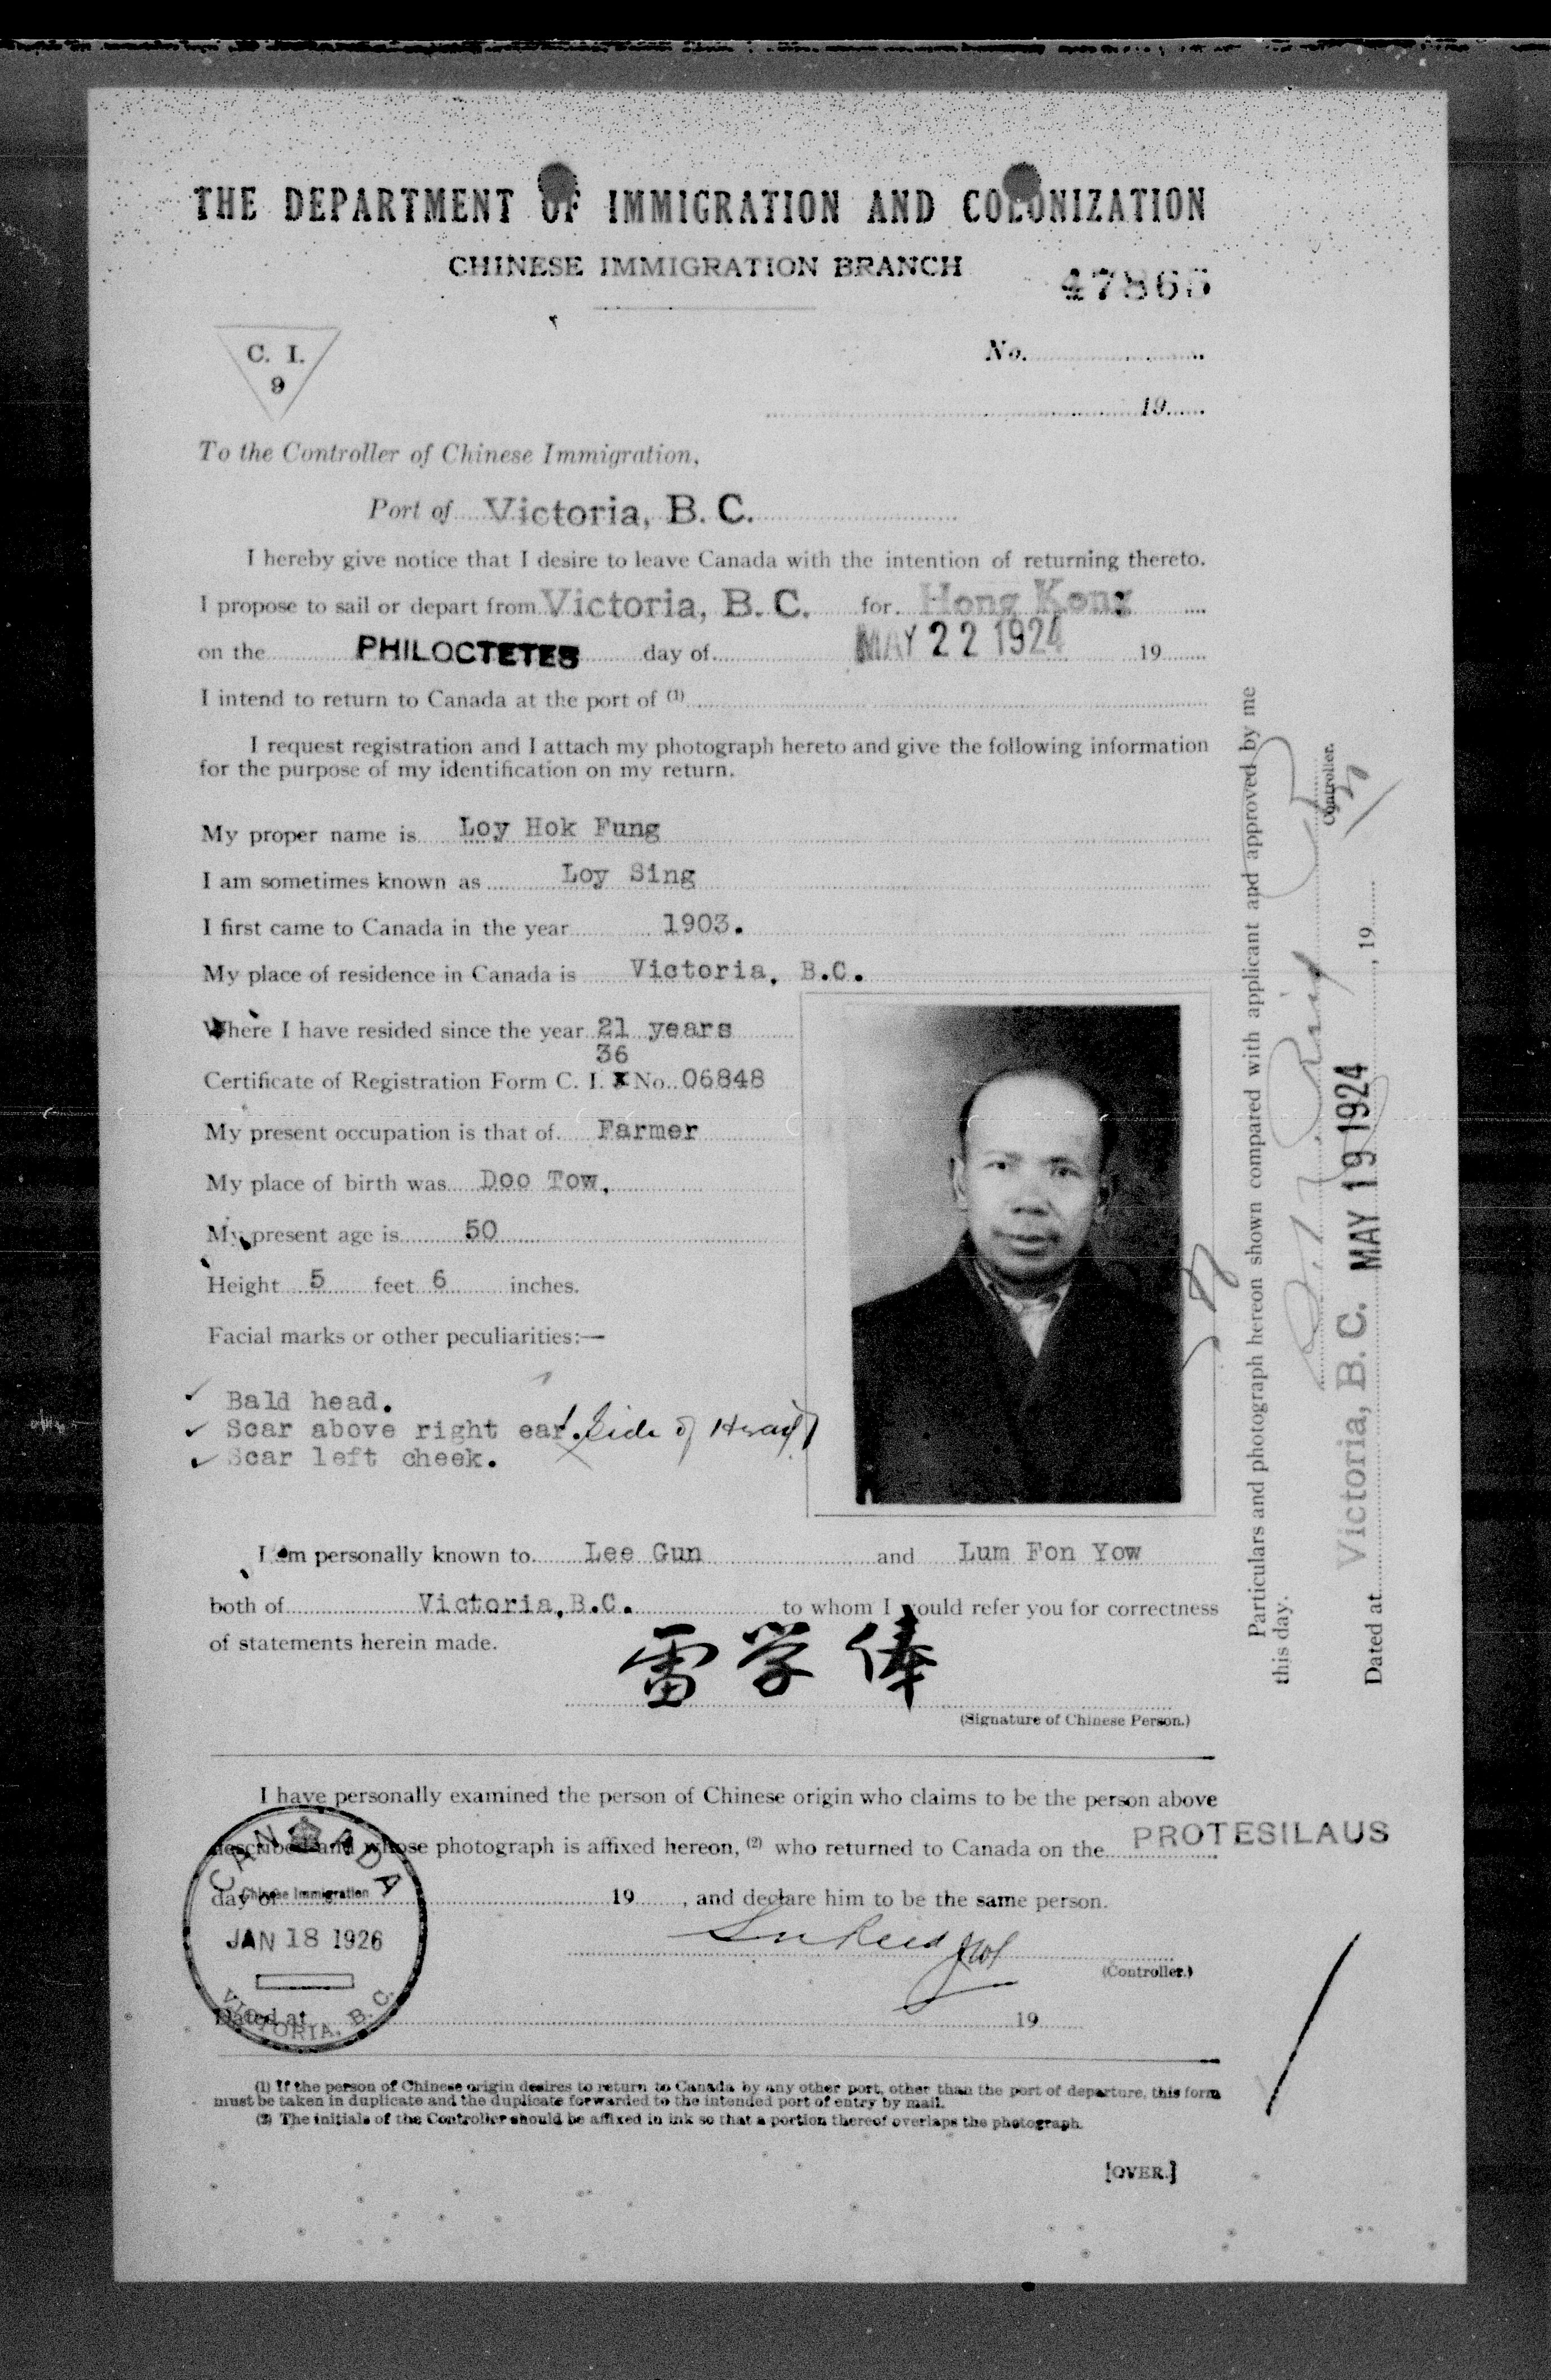 THE DEPARTMENT OF IMMIGRATION AND COLONIZATION
CHINESE IMMIGRATION BRANCH
47865
C. I.
9
No.
19
To the Controller of Chinese Immigration,
Port of Victoria, B. C.
I hereby give notice that I desire to leave Canada with the intention of returning thereto.
I propose to sail or depart from Victoria, B. C. for Hong Kong
on the PHILOCTETES day of MAY 22 1924 19
I intend to return to Canada at the port of (1)
I request registration and I attach my photograph hereto and give the following information
for the purpose of my identification on my return.
My proper name is Loy Hok Fung
I am sometimes known as Loy Sing
I first came to Canada in the year 1903.
My place of residence in Canada is Victoria, B.C.
Where I have resided since the year 21 years
36
Certificate of Registration Form C. I. X No. 06848
My present occupation is that of Farmer
My place of birth was Doo Tow,
My present age is 50
Height 5 feet 6 inches.
Facial marks or other peculiarities:—
Bald head.
Scar above right ear. Side of Head
Scar left cheek.
I am personally known to Lee Gun and Lum Fon Yow
both of Victoria, B.C. to whom I would refer you for correctness
of statements herein made.
雷学俸
(Signature of Chinese Person.)
I have personally examined the person of Chinese origin who claims to be the person above
described and whose photograph is affixed hereon, (2) who returned to Canada on the PROTESILAUS
day of 19, and declare him to be the same person.
(Controller.)
Dated at 19
CANADA
Chinese Immigration
JAN 18 1926
VICTORIA, B. C.
(1) If the person of Chinese origin desires to return to Canada by any other port, other than the port of departure, this form
must be taken in duplicate and the duplicate forwarded to the intended port of entry by mail.
(2) The initials of the Controller should be affixed in ink so that a portion thereof overlaps the photograph.
[OVER.]
Particulars and photograph hereon shown compared with applicant and approved by me
this day.
Controller.
Dated at Victoria, B. C. MAY 19 1924, 19